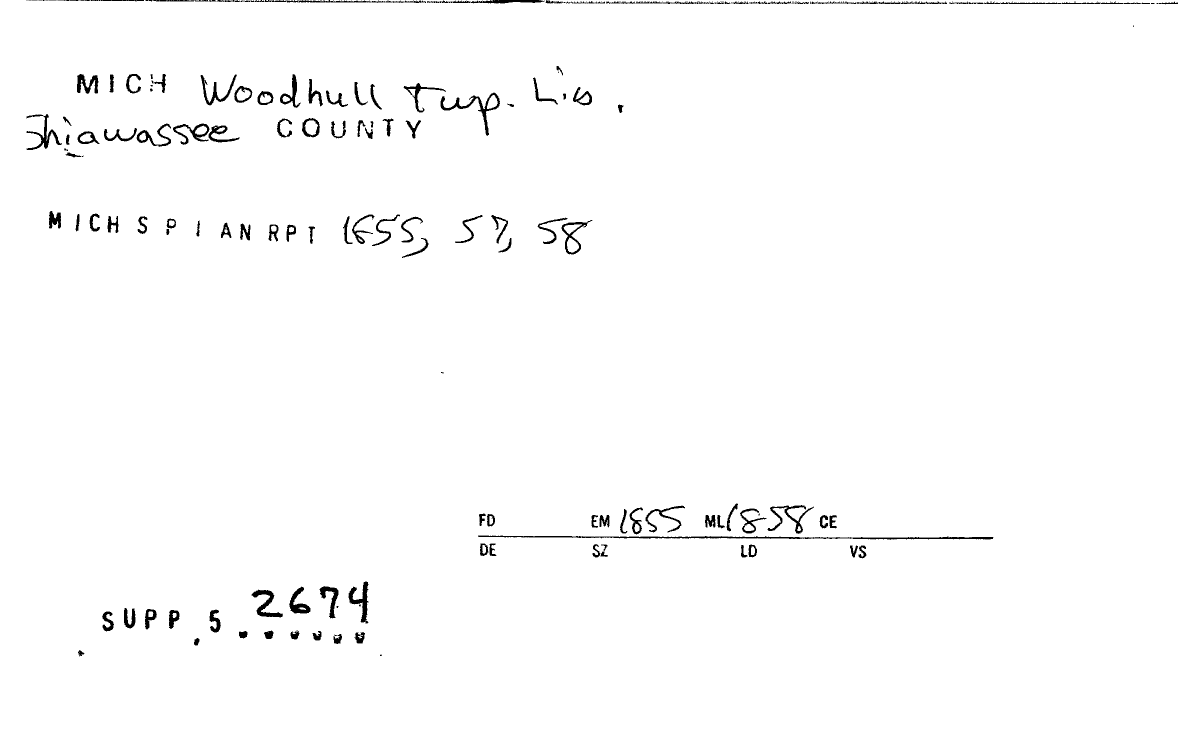 MICH Woodhull Twp. Lib.
Shiawassee COUNTY
MICH SPI AN RPT 1855, 57, 58
FD EM 1855 ML 1858 CE
DE SZ LD VS
SUPP. 5 2674